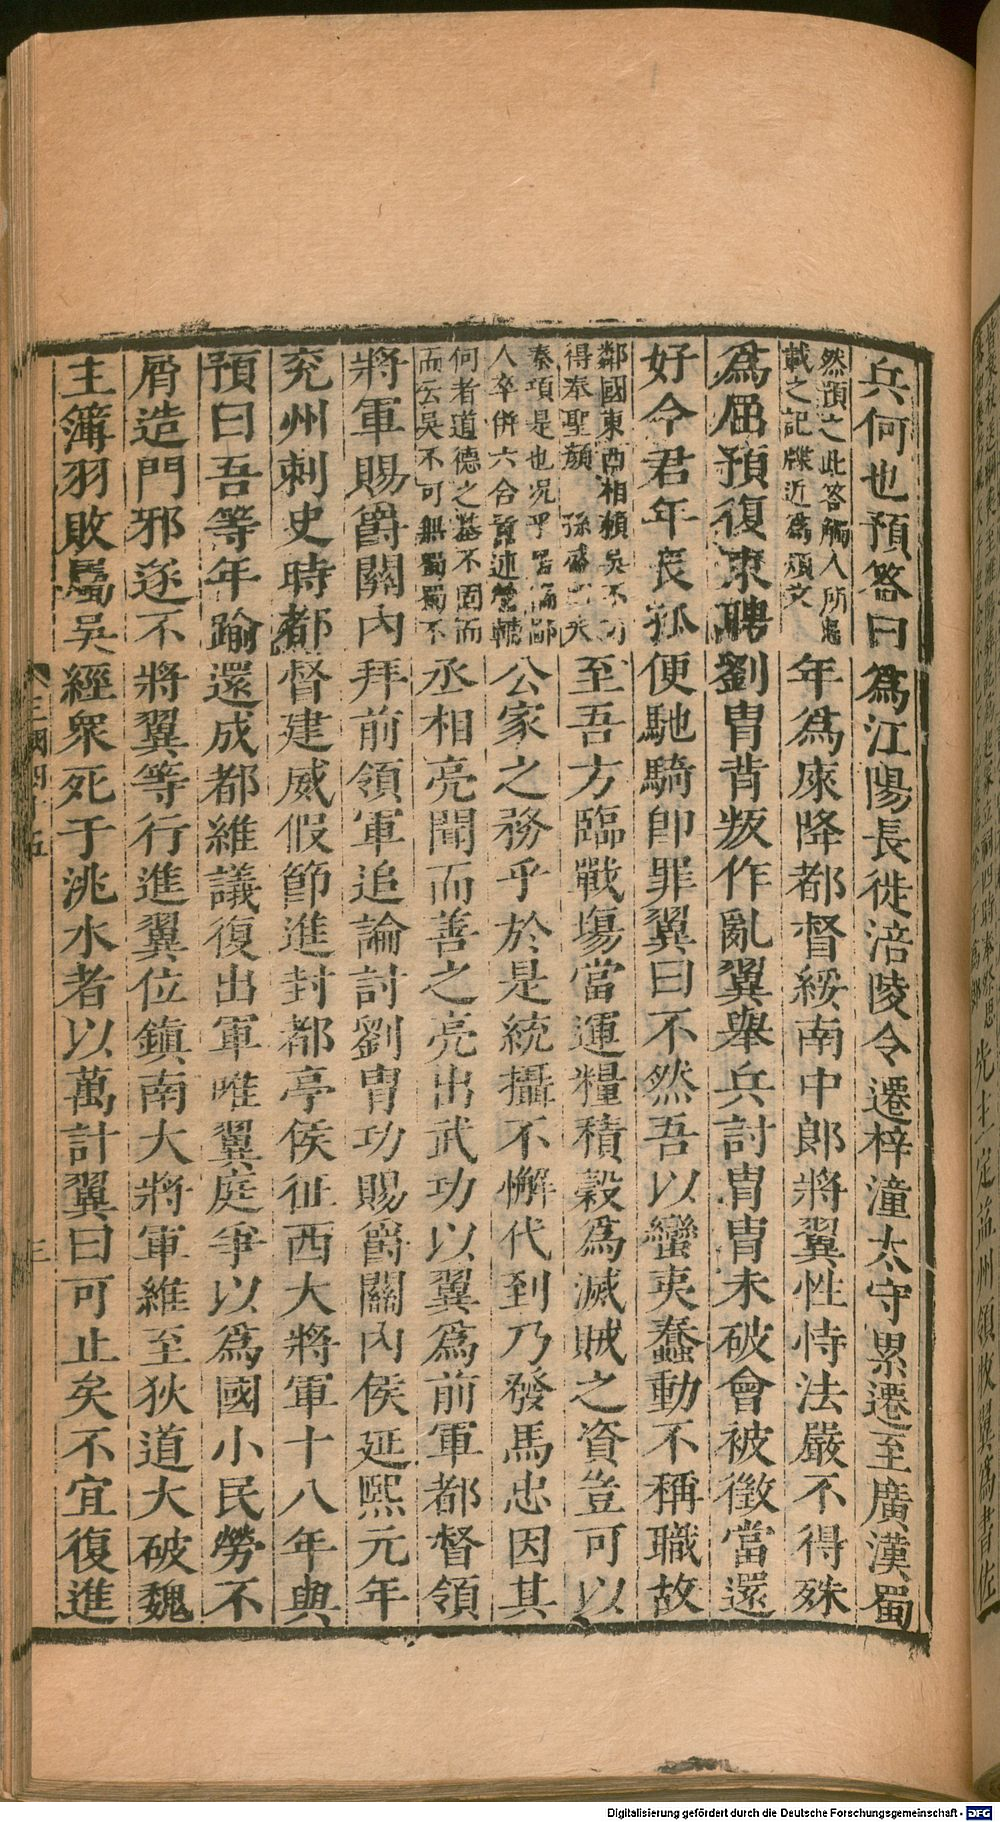 先主定益州領牧翼為書佐
兵何也預答曰為江陽長徙涪陵令遷梓潼太守累遷至廣漢蜀
然預之此答觸人所忌
載之記牒近為煩文
年為庲降都督綏南中郎將翼性恃法嚴不得殊
為屈預復東聘劉胄背叛作亂翼舉兵討胄胄未破會被徵當還
好今君年長孤便馳騎即罪翼曰不然吾以蠻夷蠢動不稱職故
鄰國東西相賴吳不可
得奉聖顏 孫盛曰夫
至吾方臨戰塲當運糧積穀為滅賊之資豈可以
秦項是也况乎居偏鄙
人卒併六合
公家之務乎於是統攝不懈代到乃發馬忠因其
何者道德之基不固而
而云吳不可無蜀蜀不
丞相亮聞而善之亮出武功以翼為前軍都督領
將軍賜爵關內拜前領軍追論討劉胄功賜爵關內侯延熙元年
兖州刺史時都督建威假節進封都亭侯征西大將軍十八年與
預曰吾等年踰還成都維議復出軍唯翼庭爭以為國小民勞不
屑造門邪遂不將翼等行進翼位鎮南大將軍維至狄道大破魏
主簿羽敗屬吳經眾死于洮水者以萬計翼曰可止矣不宜復進
三國四十五 三
Digitalisierung gefördert durch die Deutsche Forschungsgemeinschaft - DFG